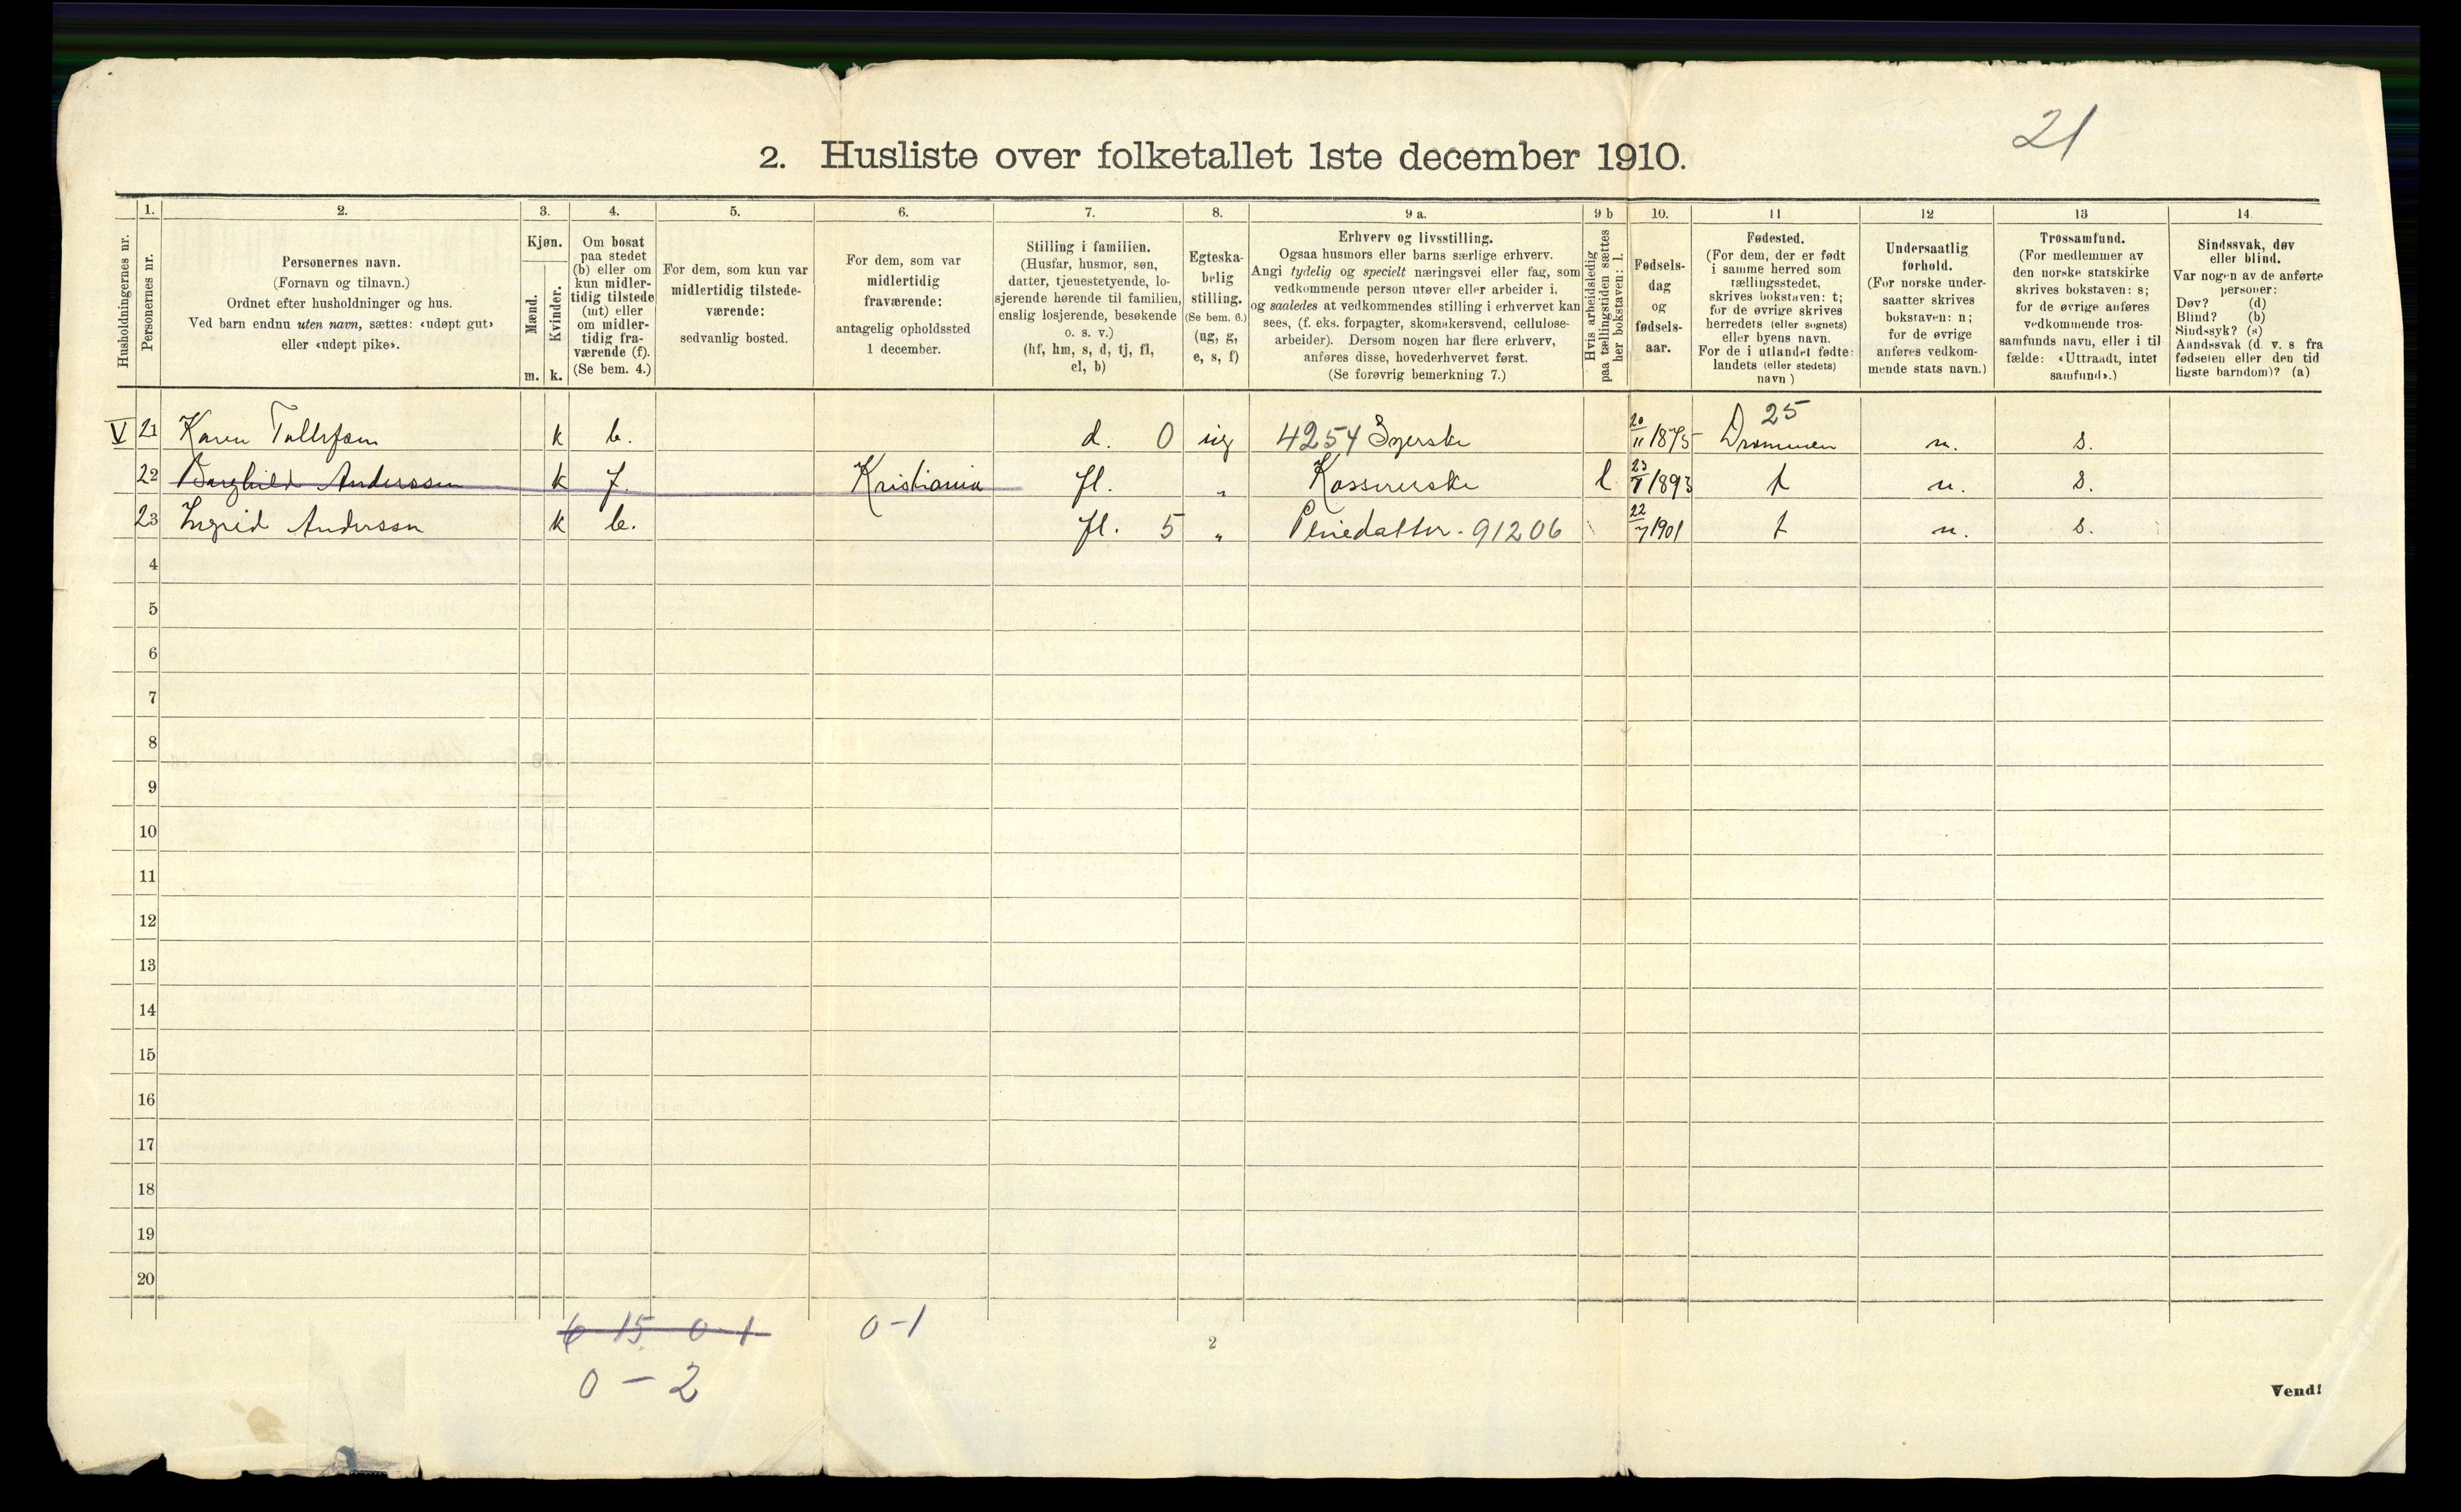 21
2. Husliste over folketallet 1ste december 1910.
Husholdningernes nr.
1.
Personernes nr.
2.
Personernes navn.
(Fornavn og tilnavn.)
Ordnet efter husholdninger og hus.
Ved barn endnu uten navn, sættes: «udøpt gut»
eller «udøpt pike».
3.
Kjøn.
Mænd.
Kvinder.
m. k.
4.
Om bosat
paa stedet
(b) eller om
kun midler-
tidig tilstede
(mt) eller
om midler-
tidig fra-
værende (f).
(Se bem. 4.)
5.
For dem, som kun var
midlertidig tilstede-
værende:
sedvanlig bosted.
6.
For dem, som var
midlertidig
fraværende:
antagelig opholdssted
1 december.
7.
Stilling i familien.
(Husfar, husmor, søn,
datter, tjenestetyende, lo-
sjerende hørende til familien,
enslig losjerende, besøkende
o. s. v.)
(hf, hm, s, d, tj, fl,
el, b)
8.
Egteska-
belig
stilling.
(Se bem. 6.)
(ug, g,
e, s, f)
9 a.
Erhverv og livsstilling.
Ogsaa husmors eller barns særlige erhverv.
Angi tydelig og specielt næringsvei eller fag, som
vedkommende person utøver eller arbeider i,
og saaledes at vedkommendes stilling i erhvervet kan
sees, (f. eks. forpagter, skomakersvend, cellulose-
arbeider). Dersom nogen har flere erhverv,
anføres disse, hovederhvervet først.
(Se forøvrig bemerkning 7.)
9 b
Hvis arbeidsledig
paa tællingstiden sættes
her bokstaven: l.
10.
Fødsels-
dag
og
fødsels-
aar.
11
Fødested.
(For dem, der er født
i samme herred som
tællingsstedet,
skrives bokstaven: t;
for de øvrige skrives
herredets (eller sognets)
eller byens navn.
For de i utlandet fødte:
landets (eller stedets)
navn )
12
Undersaatlig
forhold.
(For norske under-
saatter skrives
bokstaven: n;
for de øvrige
anføres vedkom-
mende stats navn.)
13
Trossamfund.
(For medlemmer av
den norske statskirke
skrives bokstaven: s;
for de øvrige anføres
vedkommende tros-
samfunds navn, eller i til
fælde: «Uttraadt, intet
samfund».)
14.
Sindssvak, døv
eller blind.
Var nogen av de anførte
personer:
Døv? (d)
Blind? (b)
Sindssyk? (s)
Aandssvak (d. v. s fra
fødselen eller den tid
ligste barndom)? (a)
V 21 Karen Tollefsen k b. d. 0 ug 4254 Syerske 20/11 1875 25 Drammen n. s.
22 Borghild Anderssen k f. Kristiania fl. „ Kassererske l 1893 t n. s.
23 Ingrid Anderssen k b. fl. 5 „ Pleiedatter. 91206 22/7 1901 t n. s.
4
5
6
7
8
9
10
11
12
13
14
15
16
17
18
19
20
6 15 0 1 0-1
0 - 2
2
Vend!